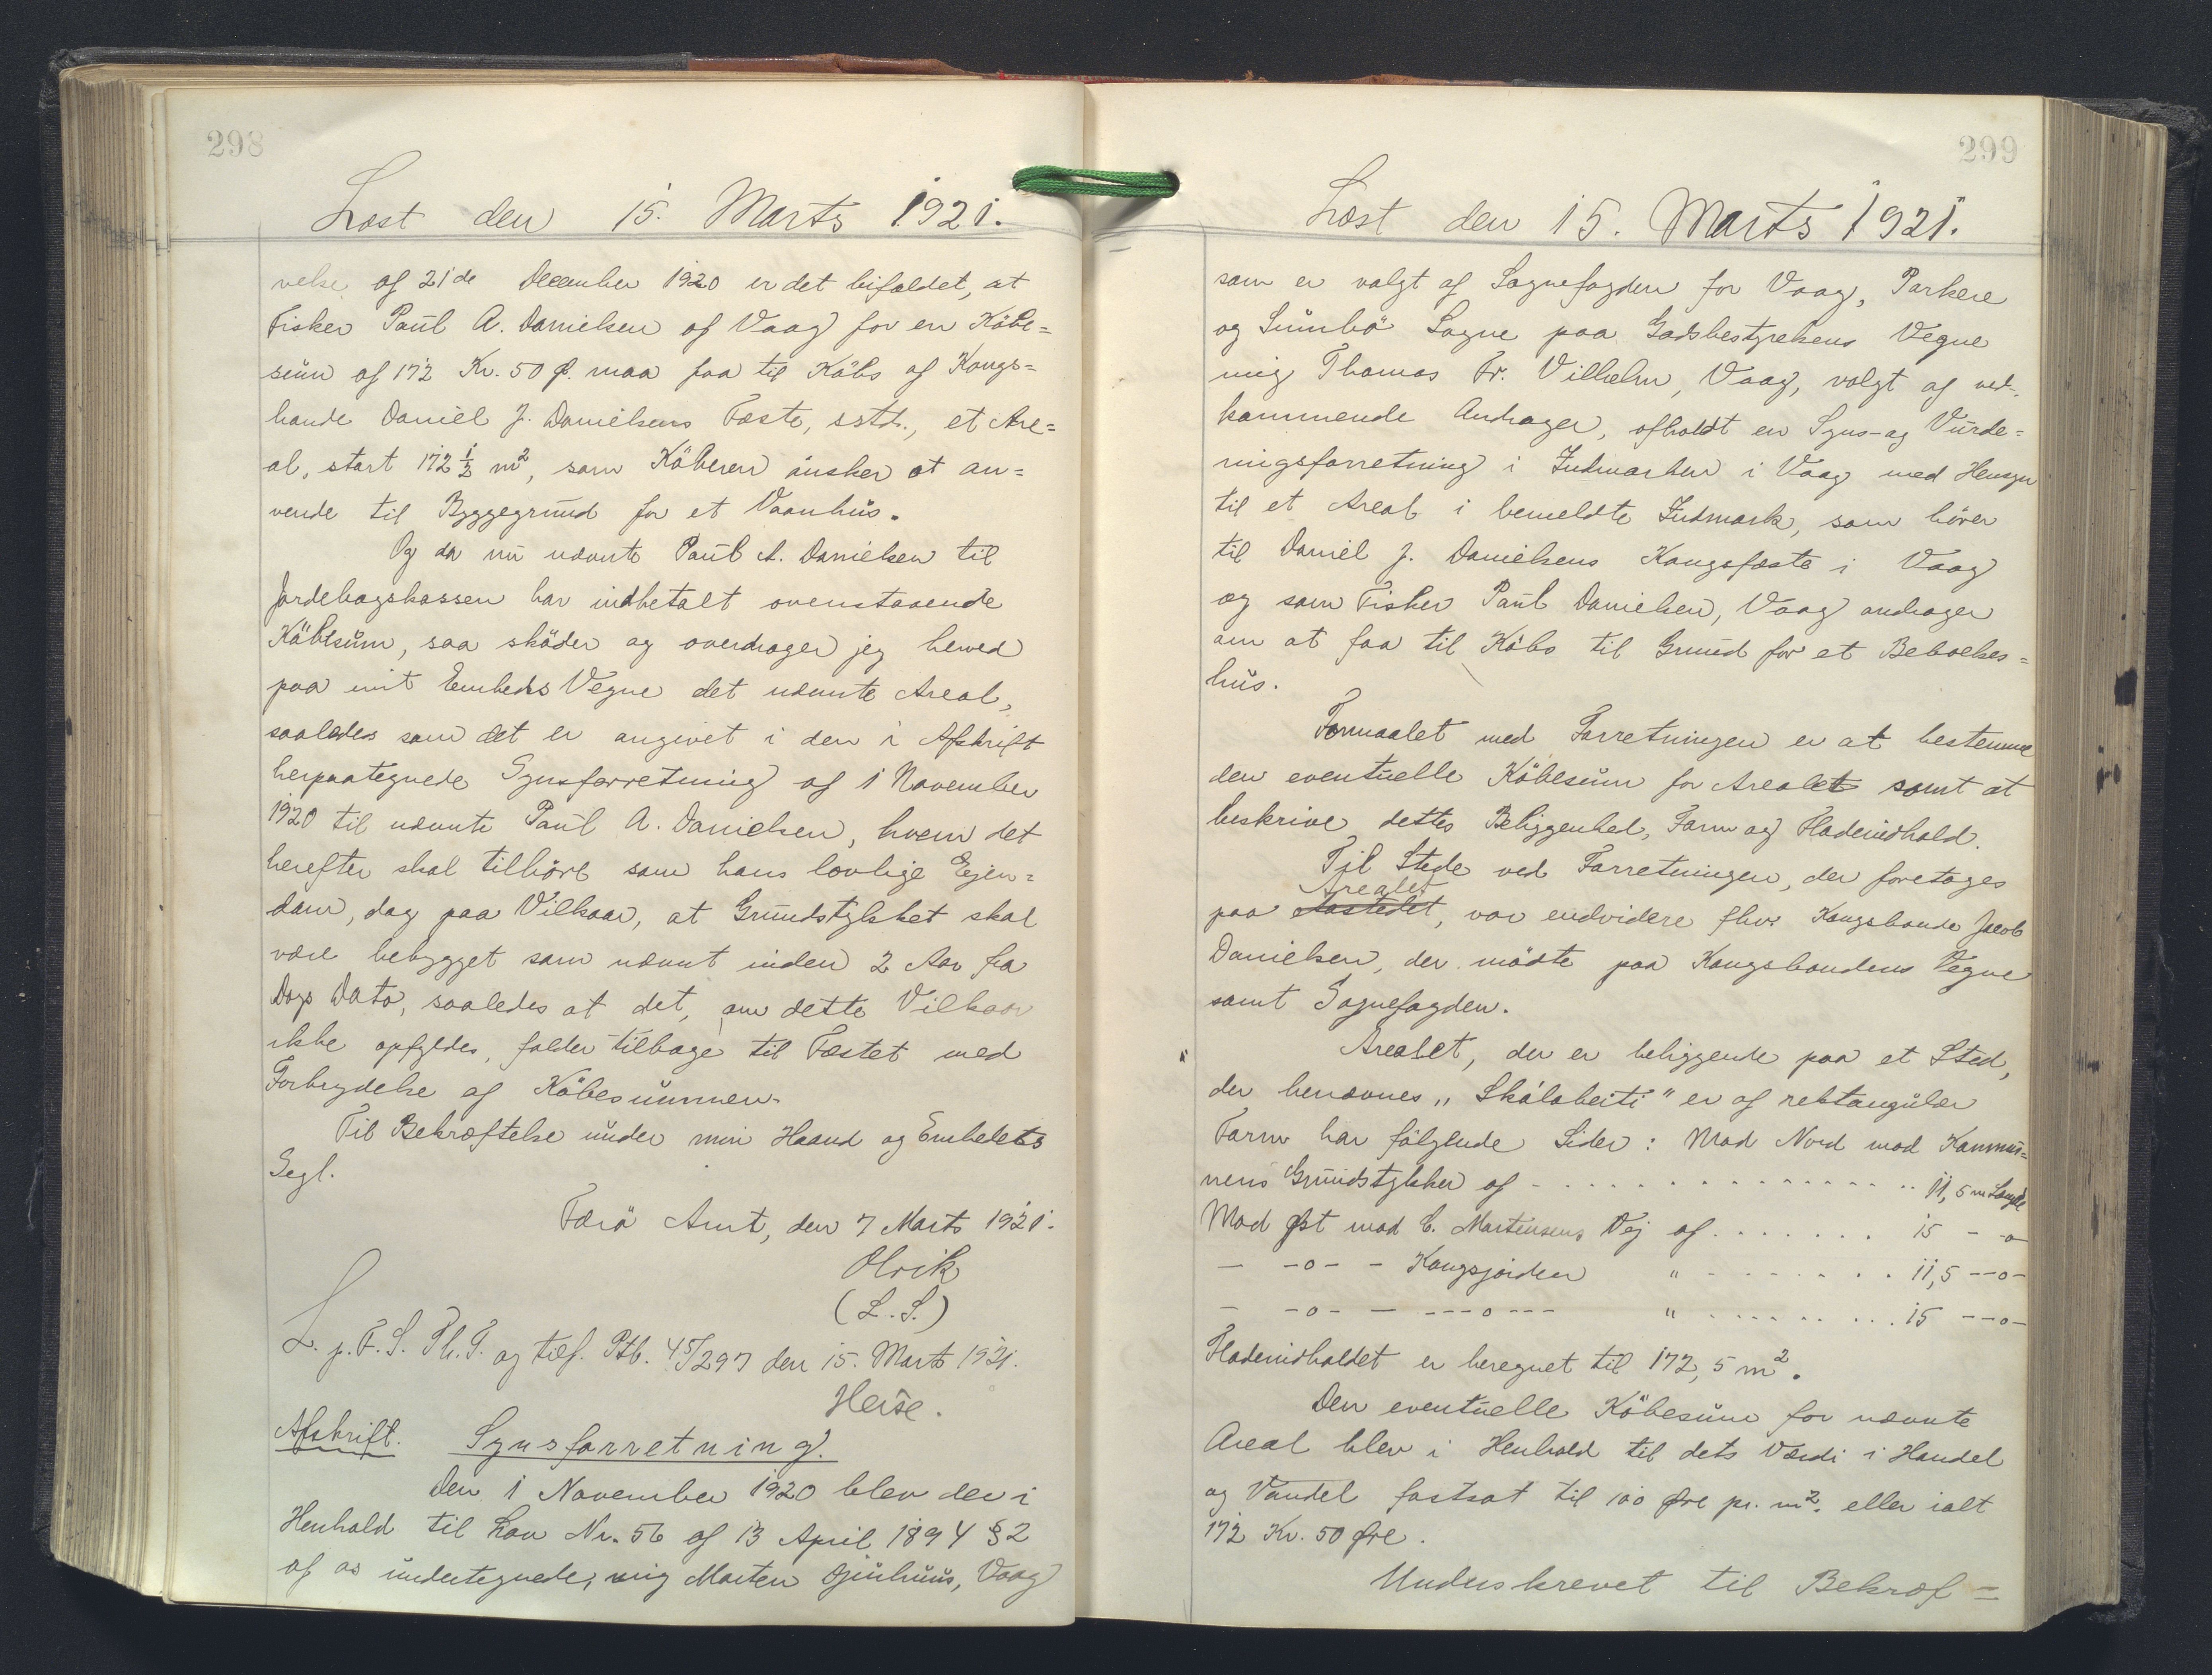 298
Læst den 15. Marts 1921.
velse af 21de December 1920 er det bifaldet, at
Fisker Paul A. Danielsen af Vaag for en Köbe=
sum af 172 Kr. 50 Ø. maa faa til Köbs af Kongs=
bonde Daniel J. Danielsens Fæste, sstds., et Are=
al, stort 172 1/2 m2, som Köberen önsker at an=
vende til Byggegrund for et Vaanhus.
Og da nu nævnte Paul A. Danielsen til
Jordebogskassen har indbetalt ovenstaaende
Köbesum, saa sköder og overdrager jeg herved
paa mit Embeds Vegne det nævnte Areal,
saaledes som det er angivet i den i Afskrift
herpaategnede Synsforretning af 1 November
1920 til nævnte Paul A. Danielsen, hvem det
herefter skal tilhöre som hans lovlige Ejen=
dom, dog paa Vilkaar, at Grundstykket skal
være bebygget som nævnt inden 2 Aar fra
Dags Dato, saaledes at det, om dette Vilkaar
ikke opfyldes, falder tilbage til Fæstet med
Forbrydelse af Köbesummen.
Til Bekræftelse under min Haand og Embedets
Segl.
Færö Amt, den 7 Marts 1921.
Olrik
(L.S.)
L. p. F. S. Th. T. og tilf. Ptb. 45/297 den 15. Marts 1921.
Heise.
Afskrift. Synsforretning.
Den 1 November 1920 blev der i
Henhold til Lov Nr. 56 af 13 April 1894 § 2
af os undertegnede, mig Morten Djurhuus, Vaag
299
Læst den 15. Marts 1921.
som er valgt af Sognefogden for Vaag, Porkere
og Sumbö Sogne paa Godsbestyrelsens Vegne
mig Thomas Fr. Vilhelm, Vaag, valgt af ved-
kommende Andrager, afholdt en Syns- og Vurde=
ringsforretning i Indmarken i Vaag med Hensyn
til et Areal i bemeldte Indmark, som hörer
til Daniel J. Danielsens Kongsfæste i Vaag
og som Fisker Paul Danielsen, Vaag andrager
om at faa til Köbs til Grund for et Beboelses=
hus.
Formaalet med Forretningen er at bestemme
den eventuelle Köbesum for Arealet samt at
beskrive dettes Beliggenhed, Form og Fladeindhold.
Til Stede ved Forretningen, der foretoges
Arealet
paa Aastedet, var endvidere fhv. Kongsbonde Jacob
Danielsen, der mödte paa Kongsbondens Vegne
samt Sognefogden.
Arealet, der er beliggende paa et Sted,
der benævnes „Skálabeiti" er af rektangulær
Form har fölgende Sider: Mod Nord mod Kommu=
nens Grundstykker af - . . . . . . . . . . . . . . 11,5 m Længde
Mod Øst mod C. Mortensens Vej af . . . . . . . 15 - -o-
- -o- - Kongsjorden " - . . . . . . 11,5 --o-
- -o- - ---o--- " . . . . . . . . 15 --o-
Fladeindholdet er beregnet til 172,5 m2.
Den eventuelle Köbesum for nævnte
Areal blev i Henhold til dets Værdi i Handel
og Vandel fastsat til 100 Øre pr. m2. eller ialt
172 Kr. 50 Øre.
Underskrevet til Bekræf=